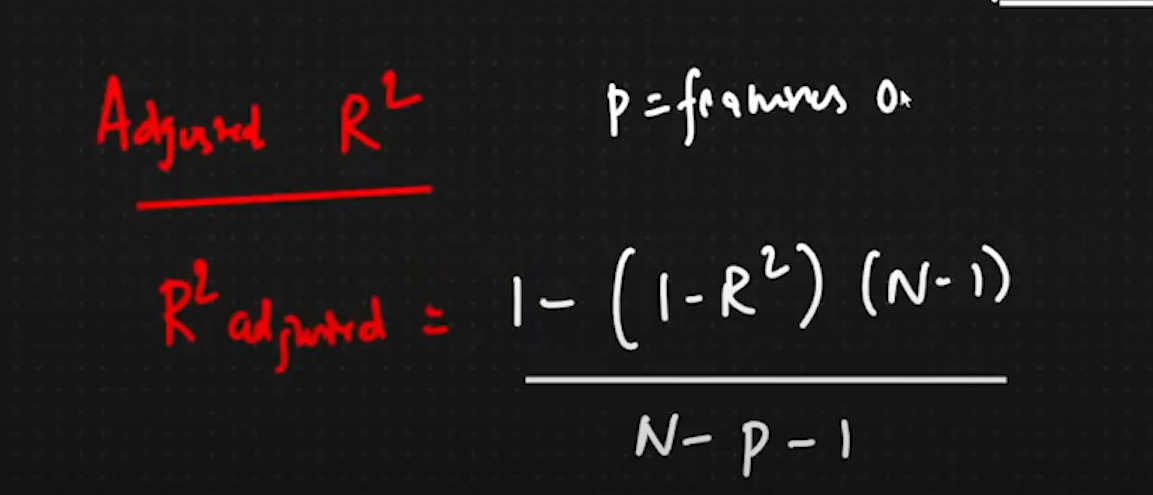 Adjusted R²
p = features o
R² adjusted = 1 - (1-R²) (N-1)
N - p - 1